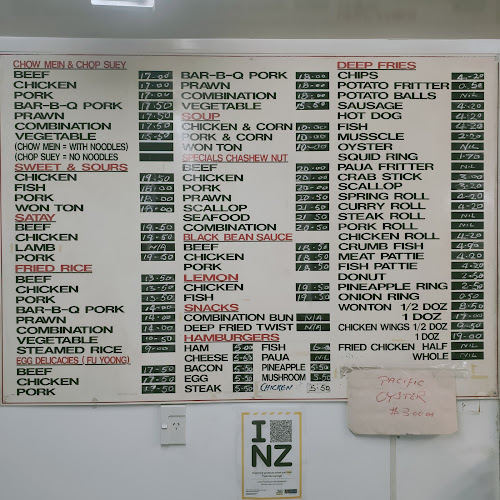 CHOW MEIN & CHOP SUEY
BEEF 17-00
CHICKEN 17-00
PORK 17-00
BAR-B-Q PORK 17-50
PRAWN 17-50
COMBINATION 17-50
VEGETABLE 15-50
(CHOW MEIN = WITH NOODLES)
(CHOP SUEY = NO NOODLES)
SWEET & SOURS
CHICKEN 19-50
FISH 18-00
PORK 18-00
WON TON 18-00
SATAY
BEEF 19-50
CHICKEN 19-50
LAMB N/A
PORK 19-50
FRIED RICE
BEEF 13-50
CHICKEN 13-50
PORK 13-50
BAR-B-Q PORK 14-00
PRAWN 14-00
COMBINATION 14-00
VEGETABLE 10-50
STEAMED RICE 9-00
EGG DELICACIES (FU YOONG)
BEEF 17-50
CHICKEN 17-50
PORK 17-50
BAR-B-Q PORK 18-00
PRAWN 18-00
COMBINATION 18-00
VEGETABLE 15-50
SOUP
CHICKEN & CORN 10-00
PORK & CORN 10-00
WON TON 10-00
SPECIALS CHASHEW NUT
BEEF 20-00
CHICKEN 20-00
PORK 20-00
PRAWN 20-50
SCALLOP 21-50
SEAFOOD 21-50
COMBINATION 20-50
BLACK BEAN SAUCE
BEEF 18-50
CHICKEN 18-50
PORK 18-50
LEMON
CHICKEN 19-50
FISH 19-50
SNACKS
COMBINATION BUN N/A
DEEP FRIED TWIST N/A
HAMBURGERS
HAM 5-00 FISH 6-00
CHEESE PAUA N/L
BACON 5-50 PINEAPPLE 5-50
EGG 5-50 MUSHROOM 5-50
STEAK 5-50 CHICKEN 5-50
DEEP FRIES
CHIPS 4-20
POTATO FRITTER 0-50
POTATO BALLS N/L
SAUSAGE 4-20
HOT DOG 4-20
FISH 4-20
MUSSCLE 2-50
OYSTER N/L
SQUID RING 1-70
PAUA FRITTER N/L
CRAB STICK 3-00
SCALLOP 3-20
SPRING ROLL 4-20
CURRY ROLL 4-20
STEAK ROLL N/L
PORK ROLL N/L
CHICKEN ROLL 4-20
CRUMB FISH 4-90
MEAT PATTIE 4-20
FISH PATTIE 4-20
DONUT 2-50
PINEAPPLE RING 2-50
ONION RING 0-50
WONTON 1/2 DOZ 8-50
1 DOZ 17-00
CHICKEN WINGS 1/2 DOZ 9-50
1 DOZ 19-00
FRIED CHICKEN HALF N/L
WHOLE N/L
PACIFIC
OYSTER
$3.00ea
I
NZ